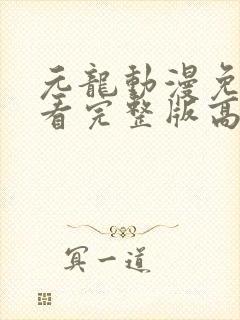 元龍動漫免
看完整版高
冥一道